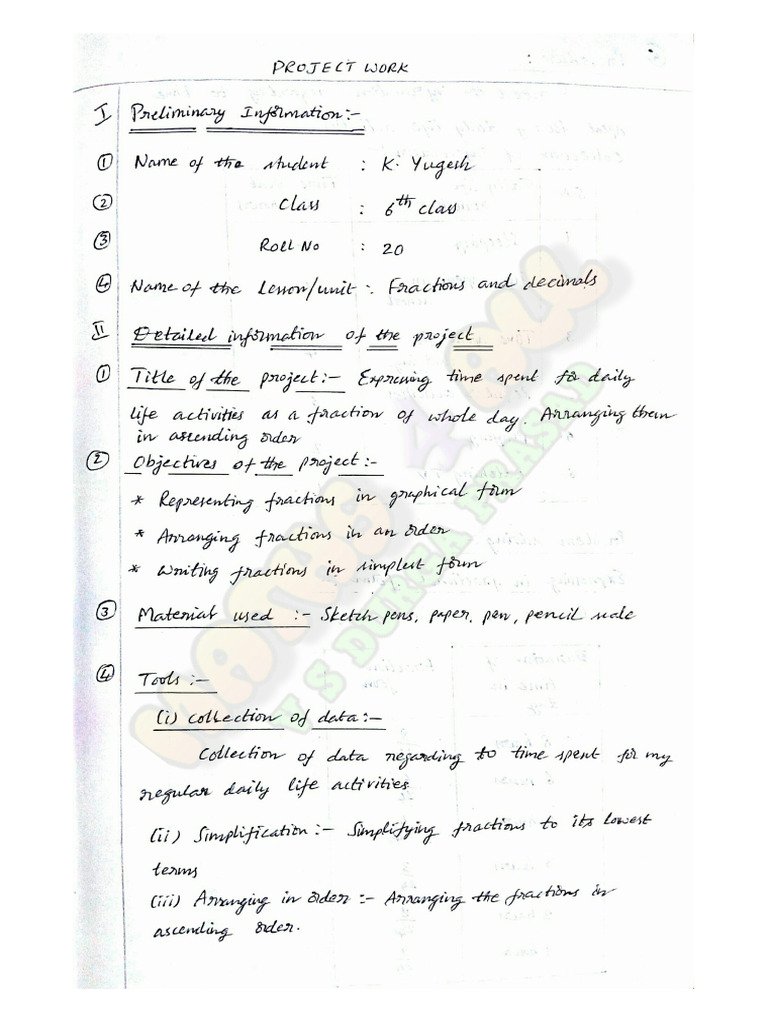 PROJECT WORK
I Preliminary Information :-
① Name of the student : K. Yugesh
② Class : 6th class
③ Roll No : 20
④ Name of the Lesson/unit : Fractions and decimals
II Detailed information of the project
① Title of the project :- Expressing time spent for daily
life activities as a fraction of whole day. Arranging them
in ascending order
② Objectives of the project :-
* Representing fractions in graphical form
* Arranging fractions in an order
* Writing fractions in simplest form
③ Material used :- Sketch pens, paper, pen, pencil scale
④ Tools :-
(i) collection of data :-
Collection of data regarding to time spent for my
regular daily life activities
(ii) Simplification :- Simplifying fractions to its lowest
terms
(iii) Arranging in order :- Arranging the fractions in
ascending order.
MATHS 4 ALL
V S DURGA PRASAD